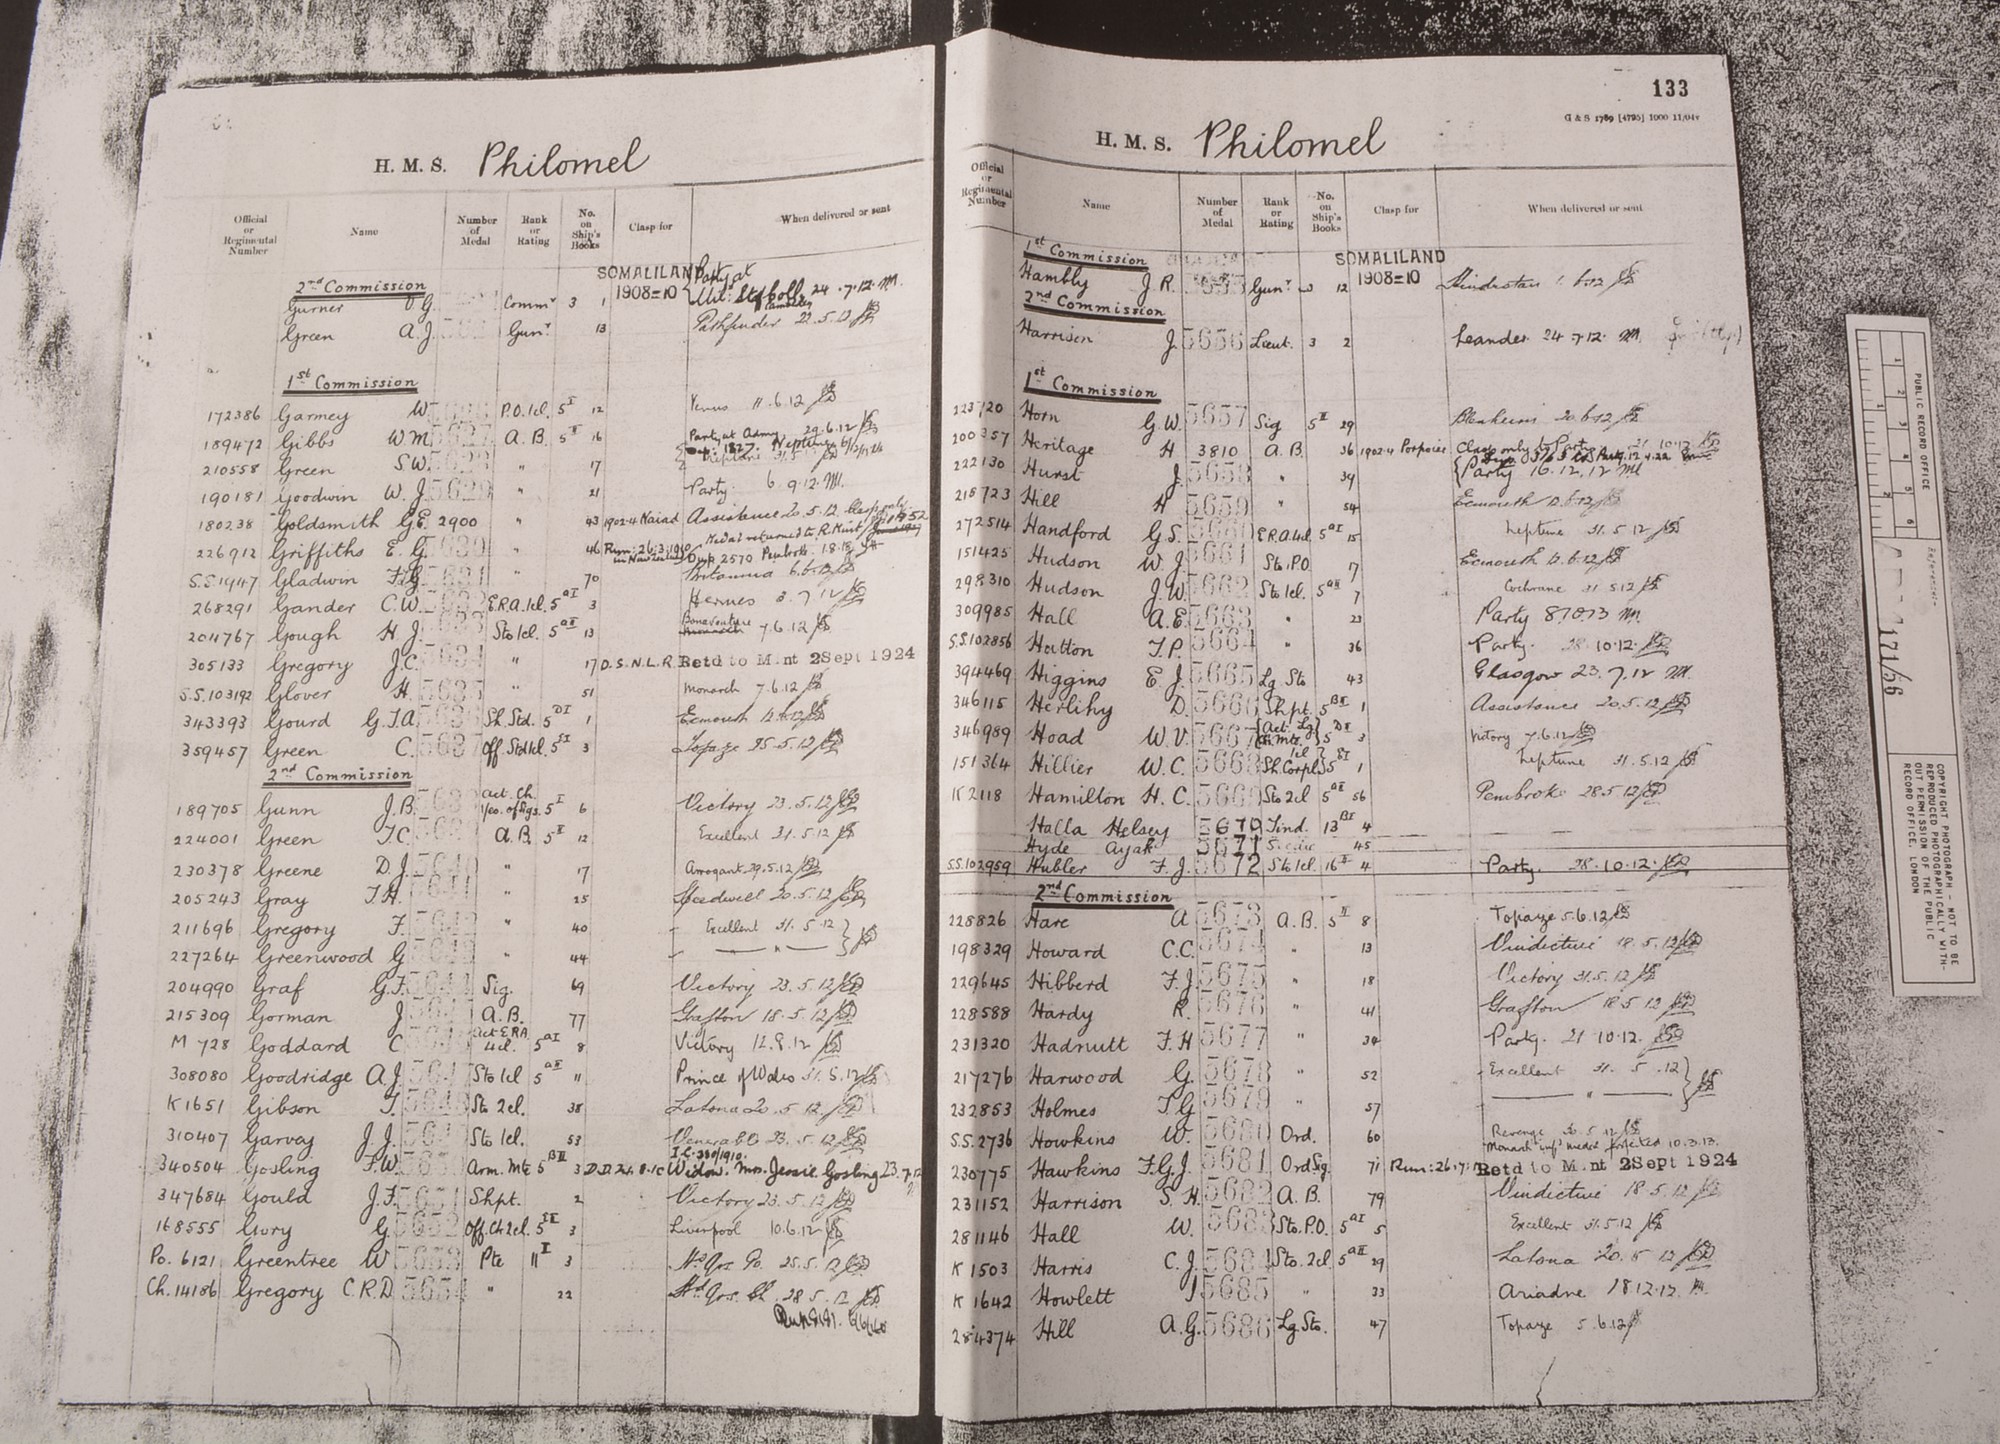 H. M. S. Philomel
Official or Regimental Number Name Number of Medal Rank or Rating No. on Ship's Books Clasp for When delivered or sent
2nd Commission SOMALILAND 1908=10
Gurner G. Commr 3 1 24.7.12. M.
Green A.J. Gunr 13 Pathfinder 22.5.12
1st Commission
172386 Garmey W. P.O. 1cl. 5 I 12 Venus 11.6.12
189472 Gibbs W.M. A.B. 5 II 16 Party at Army 29.6.12
210558 Green S.W. " 17 Neptune
190181 Goodwin W.J. 5629 " 21 Party. 6.9.12. M.
180238 Goldsmith G.E. 2900 " 43 1902-4 Naiad Assistance 20.5.12
226912 Griffiths E.G. 5630 " 46 Run: 26:3:1910 in New Zealand Medal returned to R. Mint Dup 2570 Pembroke 1.8.18
S.S.1947 Gladwin F.G. 5631 " 70 Britannia 6.6.12
268291 Gander C.W. 5632 E.R.A. 1cl. 5 aI 3 Hermes 3.7.12
204767 Gough H.J. 5633 Sto 1cl. 5 aII 13 Bonaventure 7.6.12
305133 Gregory J.C. 5634 " 17 D.S.N.L.R. Retd to Mint 2 Sept 1924
S.S.103192 Glover H. 5635 " 51 Monarch 7.6.12
343393 Gourd G.T.A. 5636 Sh. Std. 5 DI 1 Exmouth 12.6.12
359457 Green C. 5637 Off. Std 1cl. 5 EI 3 Topaze 25.5.12
2nd Commission
189705 Gunn J.B. Act. Ch. Yeo. of Sigs. 5 I 6 Victory 23.5.12
224001 Green T.C. A.B. 5 I 12 Excellent 31.5.12
230378 Greene D.J. 5640 " 17 Arrogant 29.5.12
205243 Gray T.H. 5641 " 25 Speedwell 20.5.12
211696 Gregory F. 5642 " 40 Excellent 31.5.12
227264 Greenwood G. 5643 " 44 "
204990 Graf G.F. 5644 Sig. 69 Victory 23.5.12
215309 Gorman J. A.B. 77 Grafton 18.5.12
M 728 Goddard C. Act E.R.A. 4cl. 5 aI 8 Victory 12.8.12
308080 Goodridge A.J. 5647 Sto 1cl 5 aII 11 Prince of Wales 31.5.12
K 1651 Gibson T. 5648 Sto 2cl. 38 Latona 20.5.12
310407 Garvey J.J. Sto 1cl. 53 Venerable 23.5.12
340504 Gosling F.W. Arm. Mte 5 BII 3 D.D. 24.8.10 Widow. Mrs. Jessie Gosling 23.7.12
347684 Gould J.F. 5651 Shpt. 2 Victory 23.5.12
168555 Gory G. 5652 Off. Ch 2cl. 5 EI 3 Liverpool 10.6.12
Po. 6121 Greentree W. 5653 Pte 11 I 3 Hd Qrs. Po. 25.5.12
Ch. 14186 Gregory C.R.D. 5654 " 22 Hd Qrs. Ch. 28.5.12
133
G & S 1789 [4795] 1000 11/04v
H. M. S. Philomel
Official or Regimental Number Name Number of Medal Rank or Rating No. on Ship's Books Clasp for When delivered or sent
1st Commission SOMALILAND 1908=10
Hambly J.R. Gunr 3 12 Hindustan 1.6.12
2nd Commission
Harrison J. 5656 Lieut. 3 2 Leander 24.7.12. M.
1st Commission
223720 Horn G.W. 5657 Sig 5 II 29 Blenheim 20.6.12
200357 Heritage H. 3810 A.B. 36 1902-4 Porpoise Clasp only to Party 21.10.12
222130 Hurst J. 5658 " 39 Party 16.12.12 M
215723 Hill H 5659 " 54 Exmouth 12.6.12
272514 Handford G.S. 5660 E.R.A. 4cl. 5 aI 15 Neptune 31.5.12
151425 Hudson W.J. 5661 Sto. P.O. 17 Exmouth 12.6.12
298310 Hudson J.W. 5662 Sto 1cl. 5 aII 7 Cochrane 31.5.12
309985 Hall A.E. 5663 " 23 Party 8.10.13 M.
S.S.102856 Hutton T.P. 5664 " 36 Party. 28.10.12.
394469 Higgins E.J. 5665 Lg Sto 43 Glasgow 23.7.12 M.
346115 Herlihy D. 5666 Shpt. 5 BI 1 Assistance 20.5.12
346989 Hoad W.V. 5667 5 DI 3 Victory 7.6.12
151364 Hillier W.C. 5668 Sh. Corpl 1cl 5 EI 1 Neptune 31.5.12
K 2118 Hamilton H.C. 5669 Sto 2cl 5 aII 56 Pembroke 28.5.12
Halla Helsey 5670 Tind. 13 BI 4
Hyde Ayah 5671 Seedie 45
S.S.102959 Hubler F.J. 5672 Sto 1cl. 16 II 4 Party. 28.10.12.
2nd Commission
228826 Hare A 5673 A.B. 5 II 8 Topaze 5.6.12
198329 Howard C.C. 5674 " 13 Vindictive 18.5.12
229645 Hibberd F.J. 5675 " 18 Victory 31.5.12
228588 Hardy R. 5676 " 41 Grafton 18.5.12
231320 Hadnutt F.H 5677 " 34 Party. 21.10.12.
217276 Harwood G. 5678 " 52 Excellent 31.5.12
232853 Holmes T.G 5679 " 57 "
S.S. 2736 Howkins W. 5680 Ord. 60 Revenge 30.5.12
230775 Hawkins F.G.J. 5681 Ord Sig. 71 Run: 26.7.11 Retd to Mint 2 Sept 1924
231152 Harrison S.H. 5682 A.B. 79 Vindictive 18.5.12
281146 Hall W. 5683 Sto. P.O. 5 aI 5 Excellent 31.5.12
K 1503 Harris C.J. 5684 Sto. 2cl 5 aII 29 Latona 20.5.12
K 1642 Howlett J 5685 " 33 Ariadne 18.12.12. M.
284374 Hill A.G. 5686 Lg Sto. 47 Topaze 5.6.12
PUBLIC RECORD OFFICE
Reference:-
171/56
COPYRIGHT PHOTOGRAPH - NOT TO BE REPRODUCED PHOTOGRAPHICALLY WITHOUT PERMISSION OF THE PUBLIC RECORD OFFICE, LONDON